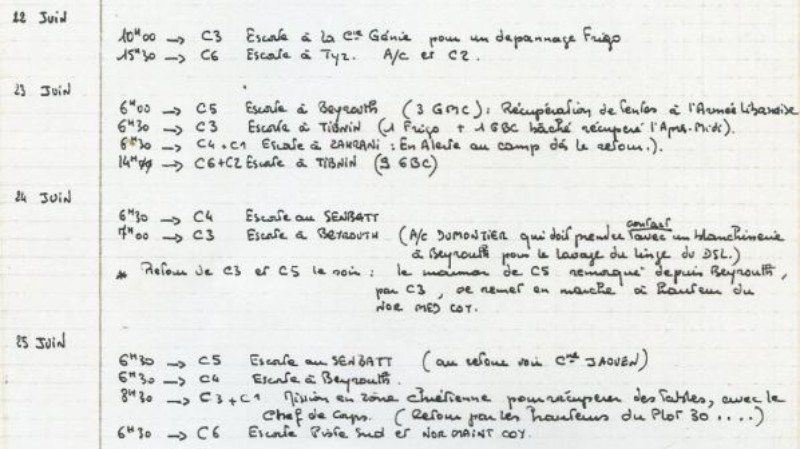 22 Juin
10H00 → C3 Escorte à la Cie Génie pour un depannage Frigo
15H30 → C6 Escorte à Tyr. A/C et C2.
23 Juin
6H00 → C5 Escorte à Beyrouth (3 GMC) : Récupération de tentes à l'Armée Libanaise
6H30 → C3 Escorte à TIBNIN (1 Frigo + 1 GBC bâché récupéré l'Apres-Midi).
6H30 → C4 + C1 Escorte à ZAHRANI : En Alerte au camp dés le retour.).
14H → C6+C2 Escorte à TIBNIN (9 GBC)
24 Juin
6H30 → C4 Escorte au SENBATT
7H00 → C3 Escorte à BEYROUTH (A/C DUMONTIER qui doit prendre contact avec un blanchisserie
à Beyrouth pour le lavage du linge du DSL.)
* Retour de C3 et C5 le soir : le marmon de C5 remorqué depuis Beyrouth,
par C3, se remet en marche à hauteur du
NOR MED COY.
25 Juin
6H30 → C5 Escorte au SENBATT (au retour voir Cne JAOUEN)
6H30 → C4 Escorte à Beyrouth.
8H30 → C3 + C1 Mission en zone chrétienne pour récuperer des tables, avec le
Chef de Corps. (Retour par les hauteurs du Plot 30 ....)
6H30 → C6 Escorte Piste Sud et NOR MAINT COY.